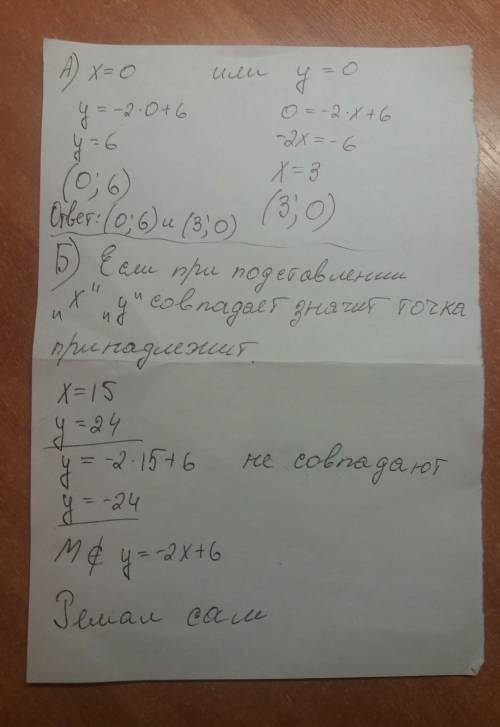 А) x=0 или y=0
y=-2·0+6 0=-2·x+6
y=6 -2x=-6
x=3
(0; 6) (3; 0)
Ответ: (0; 6) и (3; 0)
Б) Если при подставлении
„x" „y" совпадает значит точка
принадлежит.
x=15
y=24
y=-2·15+6 не совпадают
y=-24
M⊄ y=-2x+6
Решал сам